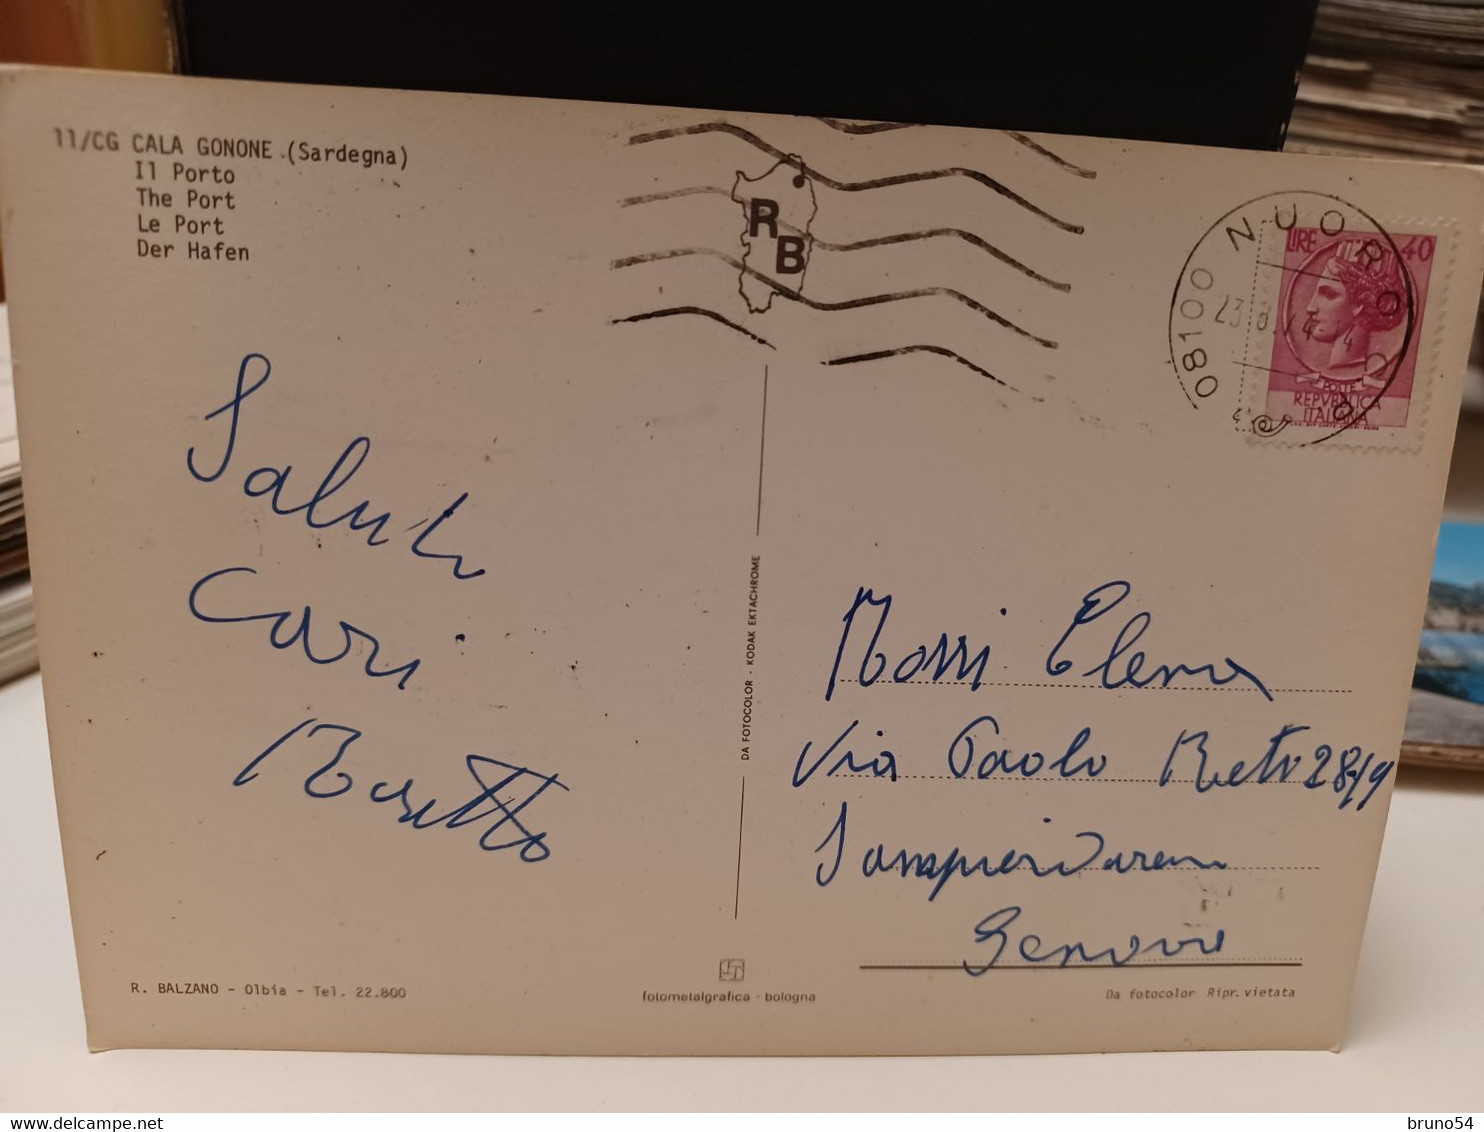 11/CG CALA GONONE (Sardegna)
Il Porto
The Port
Le Port
Der Hafen
R
B
08100 NUORO
LIRE 40
POSTE
REPVBBLICA
ITALIANA
Saluti
Cari
DA FOTOCOLOR - KODAK EKTACHROME
Elena
Via Paolo Reti 28/9
Sampierdarena
Genova
R. BALZANO - Olbia - Tel. 22.800
fotometalgrafica - bologna
Da fotocolor Ripr. vietata
bruno54